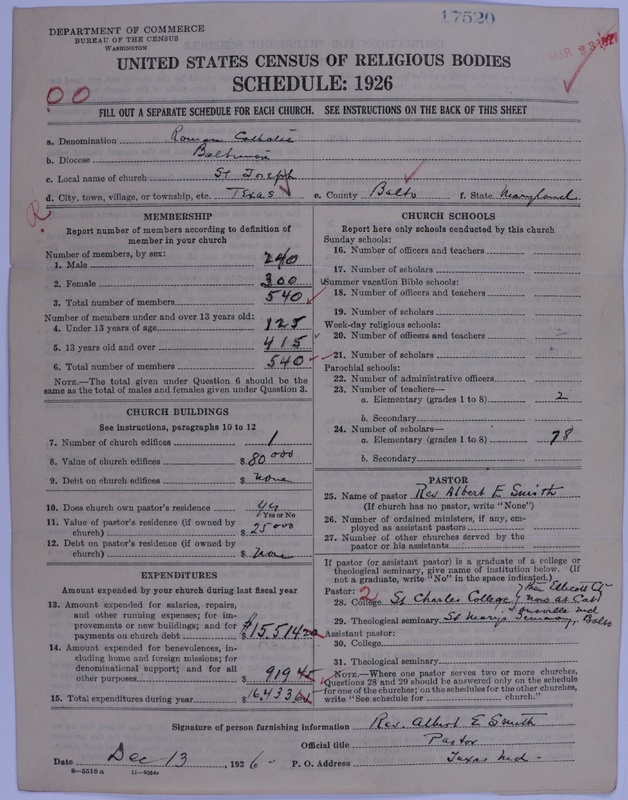 17520
DEPARTMENT OF COMMERCE
BUREAU OF THE CENSUS
WASHINGTON
UNITED STATES CENSUS OF RELIGIOUS BODIES
SCHEDULE: 1926
00
FILL OUT A SEPARATE SCHEDULE FOR EACH CHURCH. SEE INSTRUCTIONS ON THE BACK OF THIS SHEET
a. Denomination Roman Catholic
b. Diocese Baltimore
c. Local name of church St Joseph
d. City, town, village, or township, etc. Texas e. County Balto f. State Maryland
R
MEMBERSHIP
Report number of members according to definition of
member in your church
Number of members, by sex:
1. Male 240
2. Female 300
3. Total number of members 540
Number of members under and over 13 years old:
4. Under 13 years of age 125
5. 13 years old and over 415
6. Total number of members 540
NOTE.—The total given under Question 6 should be the
same as the total of males and females given under Question 3.
CHURCH BUILDINGS
See instructions, paragraphs 10 to 12
7. Number of church edifices 1
8. Value of church edifices $ 80000
9. Debt on church edifices $ None
10. Does church own pastor's residence yes
Yes or No
11. Value of pastor's residence (if owned by
church) $ 25000
12. Debt on pastor's residence (if owned by
church) $ None
EXPENDITURES
Amount expended by your church during last fiscal year
13. Amount expended for salaries, repairs,
and other running expenses; for im-
provements or new buildings; and for
payments on church debt $ 15,514 20
14. Amount expended for benevolences, in-
cluding home and foreign missions; for
denominational support; and for all
other purposes $ 919 45
15. Total expenditures during year $ 16,433 65
CHURCH SCHOOLS
Report here only schools conducted by this church
Sunday schools:
16. Number of officers and teachers
17. Number of scholars
Summer vacation Bible schools:
18. Number of officers and teachers
19. Number of scholars
Week-day religious schools:
20. Number of officers and teachers
21. Number of scholars
Parochial schools:
22. Number of administrative officers
23. Number of teachers—
a. Elementary (grades 1 to 8) 2
b. Secondary
24. Number of scholars—
a. Elementary (grades 1 to 8) 78
b. Secondary
PASTOR
25. Name of pastor Rev Albert E. Smith
(If church has no pastor, write "None")
26. Number of ordained ministers, if any, em-
ployed as assistant pastors
27. Number of other churches served by the
pastor or his assistants
If pastor (or assistant pastor) is a graduate of a college or
theological seminary, give name of institution below. (If
not a graduate, write "No" in the space indicated.)
Pastor: 2 then Ellicott Cy
28. College St Charles College now at Cat
onsville Md
29. Theological seminary St Marys Seminary, Balto
Assistant pastor:
30. College
31. Theological seminary
NOTE.—Where one pastor serves two or more churches,
Questions 28 and 29 should be answered only on the schedule
for one of the churches; on the schedules for the other churches,
write "See schedule for church."
Signature of person furnishing information Rev. Albert E Smith
Official title Pastor
Date Dec 13, 1926 P. O. Address Texas Md
8—5518 a 11—9354a